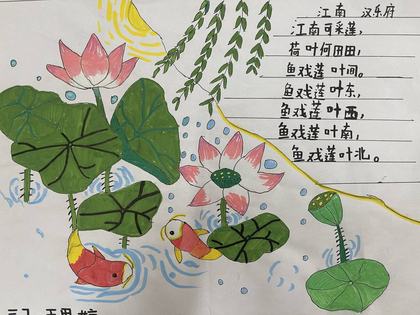 江南 汉乐府
江南可采莲，
荷叶何田田，
鱼戏莲叶间。
鱼戏莲叶东，
鱼戏莲叶西，
鱼戏莲叶南，
鱼戏莲叶北。